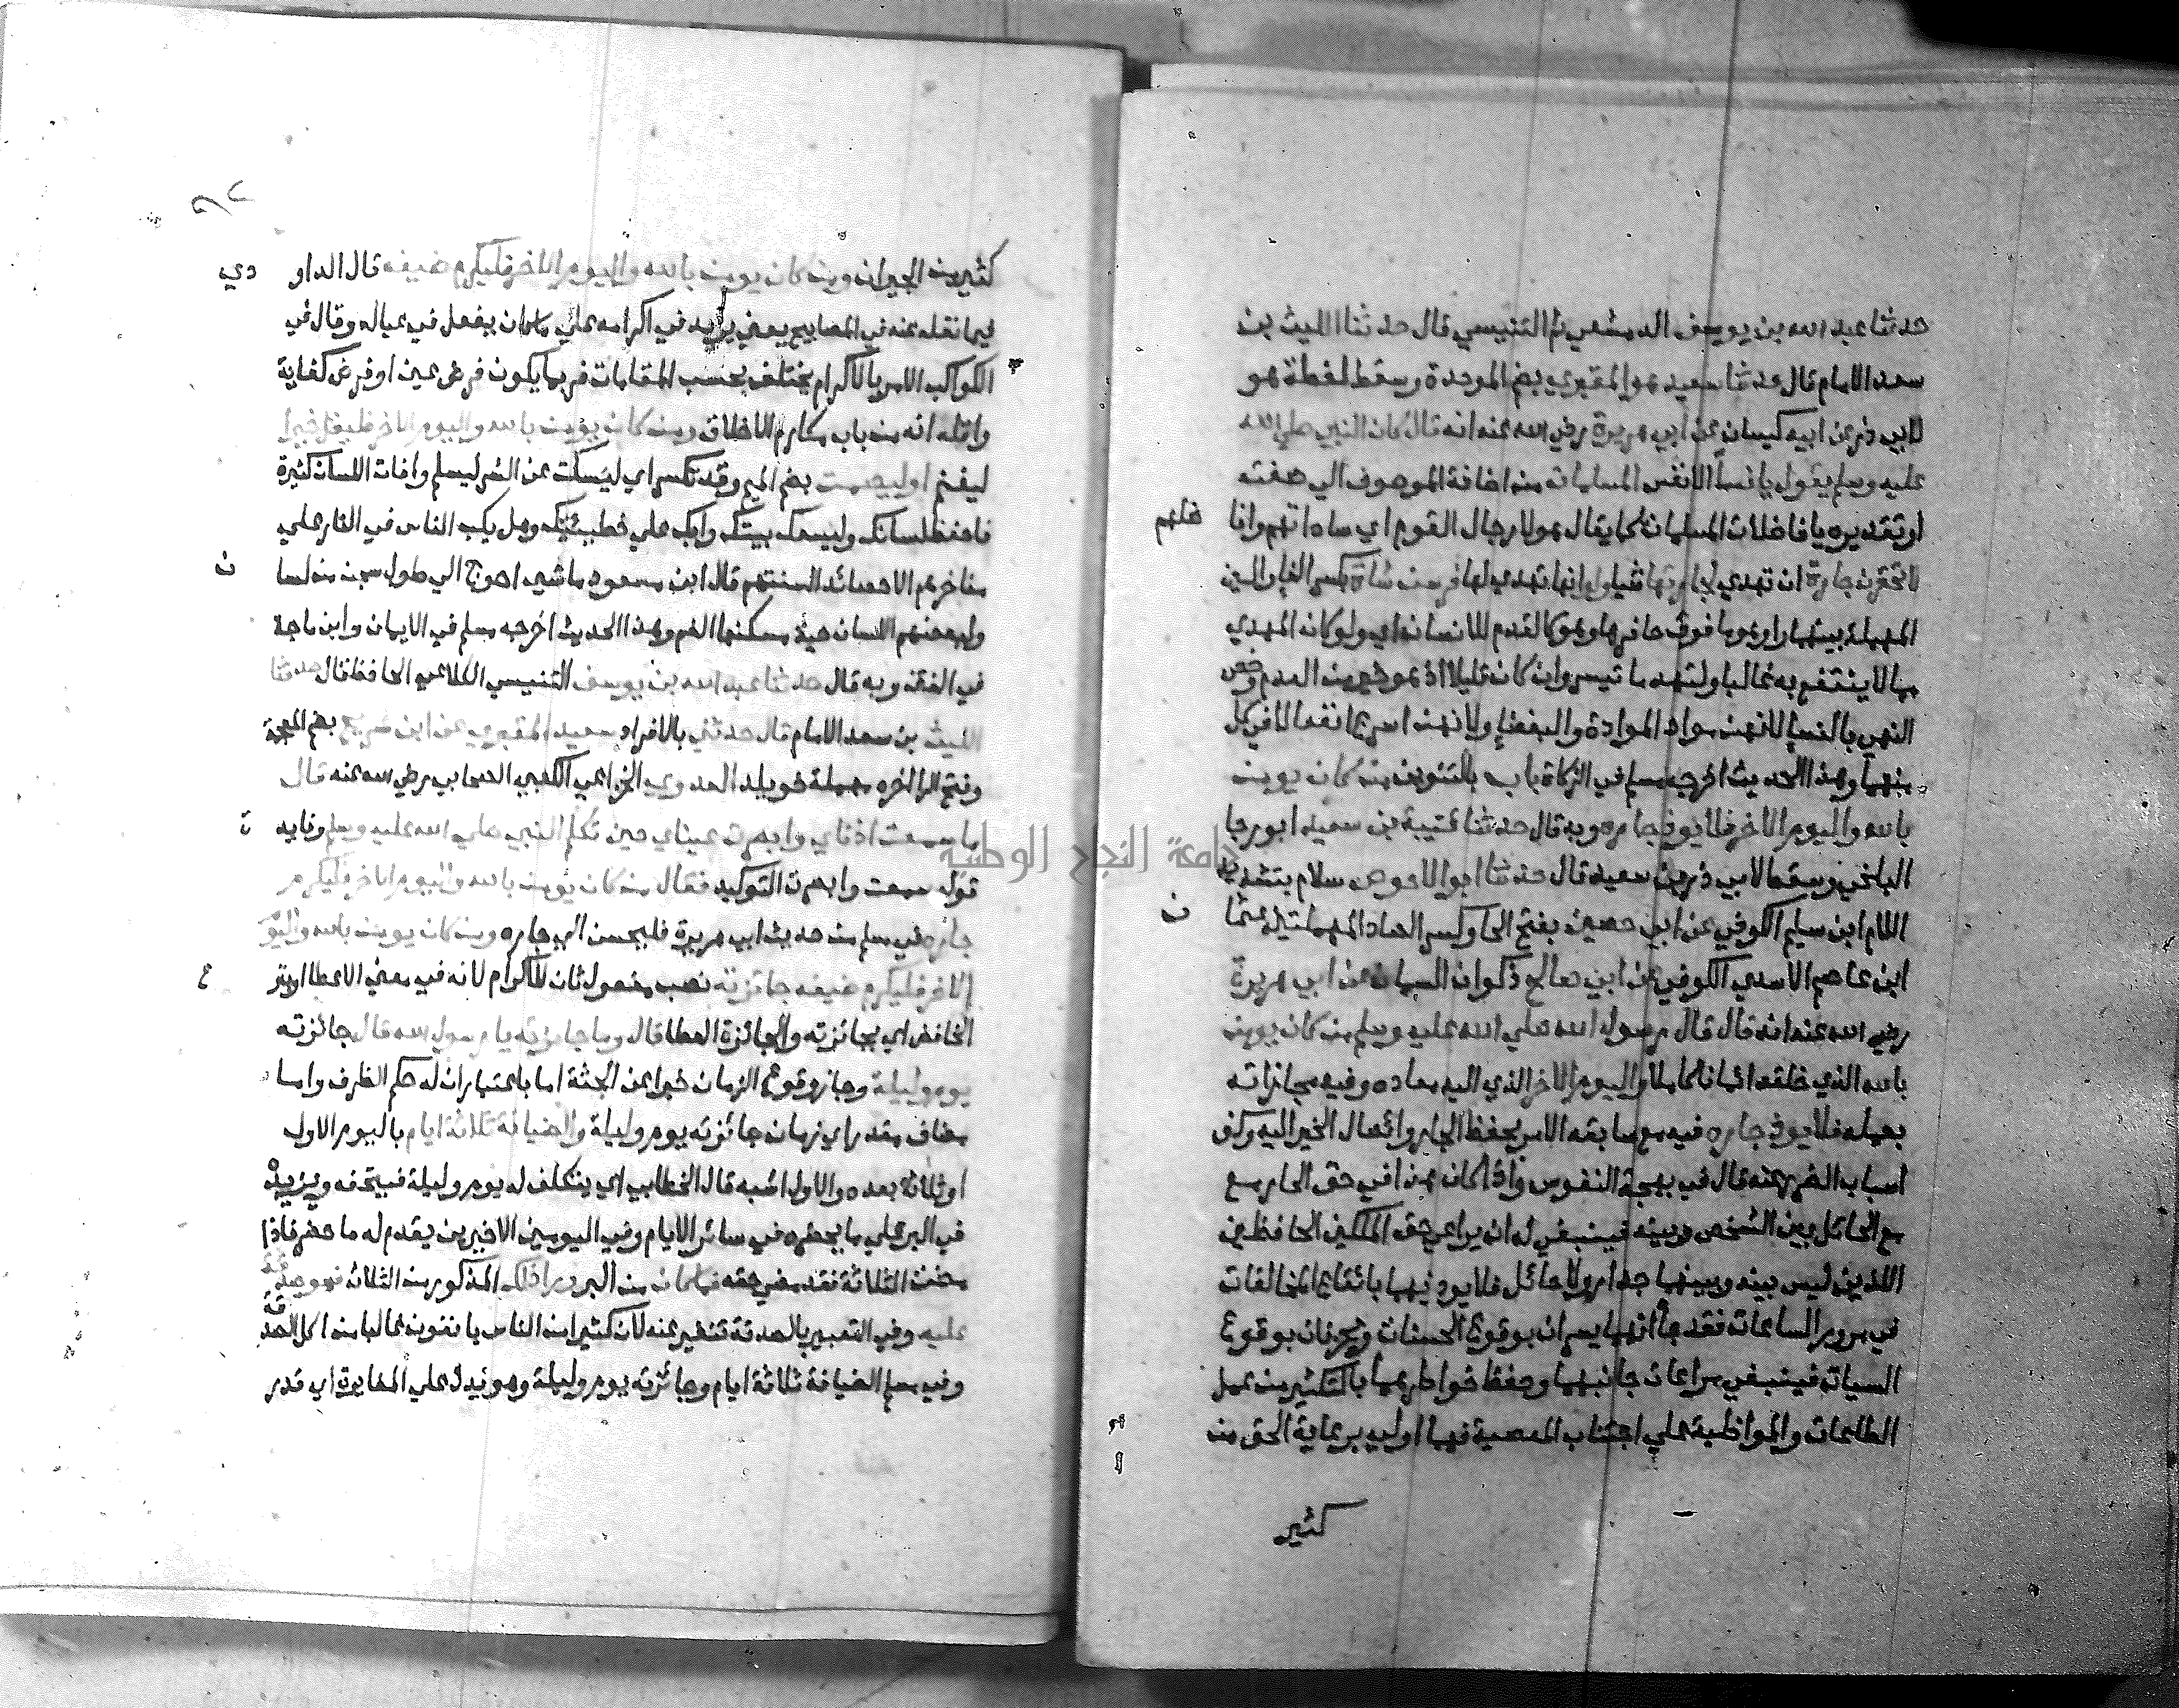 حدثنا عبد الله بن يوسف الدمشقي ثم التنيسي قال حدثنا الليث بن
سعد الامام قال حدثنا سعيد هو المقبري بضم الموحدة وسقط لفظة هو
لابي ذر عن ابيه كيسان عن ابي هريرة رضي الله عنه انه قال كان النبي صلي الله
عليه وسلم يقول يا نساء الانفس المسلمات من اضافة الموصوف الي صفته
او تقديره يا فاضلات المسلمات كما يقال هولا رجال القوم اي ساداتهم وافا
ضلهم
لا تحقرن جارة ان تهدي لجارتها شيا ولو انها تهدي لها فرسن شاة بكسر الفا والسين
المهملة بينهما را وهو ما فوق حافرها وهو كالقدم للانسان اي ولو كان المهدي
مما لا ينتفع به غالبا ولتهد ما تيسر وان كان قليلا اذ هو خير من العدم وخص
النهي بالنساء لانهن مواد الموادة والبغضاء ولانهن اسرع انتقالا في كل
منهما وهذا الحديث اخرجه مسلم في الزكاة باب بالتنوين من كان يومن
بالله واليوم الاخر فلا يوذ جاره وبه قال حدثنا قتيبة بن سعيد ابو رجا
البلخي وسقط لابي ذر بن سعيد قال حدثنا ابو الاحوص سلام بتشديد
اللام ابن سليم الكوفي عن ابي حصين بفتح الحا وكسر الصاد المهملتين عثما
ن
ابن عاصم الاسدي الكوفي عن ابي صالح ذكوان السمان عن ابي هريرة
رضي الله عنه انه قال قال رسول الله صلي الله عليه وسلم من كان يومن
بالله الذي خلقه ايمانا كاملا واليوم الاخر الذي اليه معاده وفيه مجازاته
بعمله فلا يوذ جاره فيه مع سابقه الامر بحفظ الجار وايصال الخير اليه وكف
اسباب الضرر عنه قال في بهجة النفوس واذا كان هذا في حق الجار مع
مع الحائل بين الشخص وبينه فينبغي له ان يراعي حق الملكين الحافظين
اللذين ليس بينه وبينهما جدار ولا حائل فلا يوذيهما بايقاع المخالفات
في مرور الساعات فقد جا انهما يسران بوقوع الحسنات ويحزنان بوقوع
السيات فينبغي مراعات جانبهما وحفظ خواطرهما بالتكثير من عمل
الطاعات والمواظبة علي اجتناب المعصية فهما اولي برعاية الحق من
كثير
كثير من الجيران ومن كان يومن بالله واليوم الاخر فليكرم ضيفه قال الداو
دي
فيما نقله عنه في المصابيح يعني يزيد في اكرامه علي ما كان يفعل في عياله وقال في
الكواكب الامر بالاكرام يختلف بحسب المقامات فربما يكون فرض عين او فرض كفاية
واقله انه من باب مكارم الاخلاق ومن كان يومن بالله واليوم الاخر فليقل خيرا
ليغنم او ليصمت بضم الميم وقد تكسر اي ليسكت عن الشر ليسلم وافات اللسان كثيرة
فاحفظ لسانك وليسعك بيتك وابك علي خطيئتك وهل يكب الناس في النار علي
مناخرهم الا حصائد السنتهم قال ابن مسعود ما شي احوج الي طول سجن من لسا
ن
ولبعضهم اللسان حية مسكنها الفم وهذا الحديث اخرجه مسلم في الايمان وابن ماجة
في الفتن وبه قال حدثنا عبد الله بن يوسف التنيسي الكلاعي الحافظ قال حدثنا
الليث بن سعد الامام قال حدثني بالافراد سعيد المقبري عن ابن شريح بضم المعجمة
وفتح الرا اخره مهملة خويلد العدوي الخزاعي الكعبي الصحابي رضي الله عنه قال
ما سمعت اذناي وابصرت عيناي حين تكلم النبي صلي الله عليه وسلم وفايد
ة
قوله سمعت وابصرت التوكيد فقال من كان يومن بالله واليوم الاخر فليكرم
جاره في مسلم من حديث ابي هريرة فليحسن الي جاره ومن كان يومن بالله واليو
الاخر فليكرم ضيفه جائزته نصب مفعول ثان للاكرام لانه في معني الاعطا او بنز
ع
الخافض اي بجائزته والجائزة العطا قال وما جائزته يا رسول الله قال جائزته
يوم وليلة وجاز وقوع الزمان خبرا عن الجثة اما باعتبار ان له حكم الظرف واما
مضاف مقدر اي زمان جائزته يوم وليلة والضيافة ثلاثة ايام باليوم الاول
او ثلاثة بعده والاول اشبه قال الخطابي اي يتكلف له يوم وليلة فيتحفه ويزيده
في البر علي ما يحضره في سائر الايام وفي اليومين الاخيرين يقدم له ما حضر فاذا
مضت الثلاثة فقد مضي حقه فما كان من البر ورا ذلك المذكور من الثلاث فهو صدقة
عليه وفي التعبير بالصدقة تنفير عنه لان كثيرا من الناس يانفون غالبا من اكل الصدقة
وفي مسلم الضيافة ثلاثة ايام وجائزته يوم وليلة وهو يدل علي المغايرة اي قدر
جامعة النجاح الوطنية